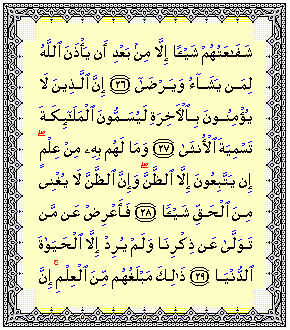 شَفَـٰعَتُهُمْ شَيْـًٔا إِلَّا مِنۢ بَعْدِ أَن يَأْذَنَ ٱللَّهُ
لِمَن يَشَآءُ وَيَرْضَىٰٓ ﴿٢٦﴾ إِنَّ ٱلَّذِينَ لَا
يُؤْمِنُونَ بِٱلْأَخِرَةِ لَيُسَمُّونَ ٱلْمَلَـٰٓئِكَةَ
تَسْمِيَةَ ٱلْأُنثَىٰ ﴿٢٧﴾ وَمَا لَهُم بِهِۦ مِنْ عِلْمٍ ۖ
إِن يَتَّبِعُونَ إِلَّا ٱلظَّنَّ ۖ وَإِنَّ ٱلظَّنَّ لَا يُغْنِى
مِنَ ٱلْحَقِّ شَيْـًٔا ﴿٢٨﴾ فَأَعْرِضْ عَن مَّن
تَوَلَّىٰ عَن ذِكْرِنَا وَلَمْ يُرِدْ إِلَّا ٱلْحَيَوٰةَ
ٱلدُّنْيَا ﴿٢٩﴾ ذَٰلِكَ مَبْلَغُهُم مِّنَ ٱلْعِلْمِ ۚ إِنَّ